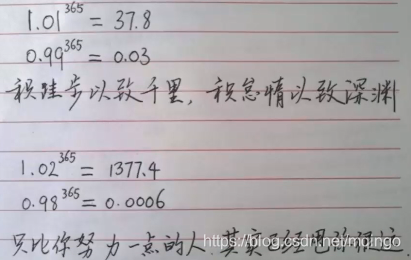 1.01^365 = 37.8
0.99^365 = 0.03
积跬步以致千里，积怠惰以致深渊
1.02^365 = 1377.4
0.98^365 = 0.0006
只比你努力一点的人.其实已经甩你很远.
https://blog.csdn.net/mqingo